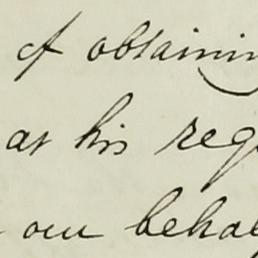 of obtainin
as his reg
our behal